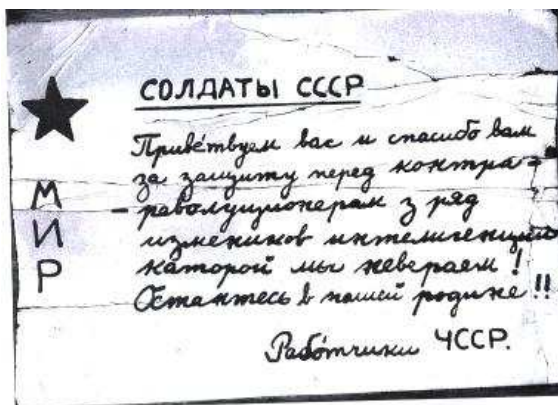 СОЛДАТЫ СССР
Приве́твуем вас и спасибо вам
за защиту перед контра-
-раволуционерам з ряд
измеников интелигенции
каторой мы невераем!
Остантесь в нашей родине!!
Рабо́тчики ЧССР.
МИР